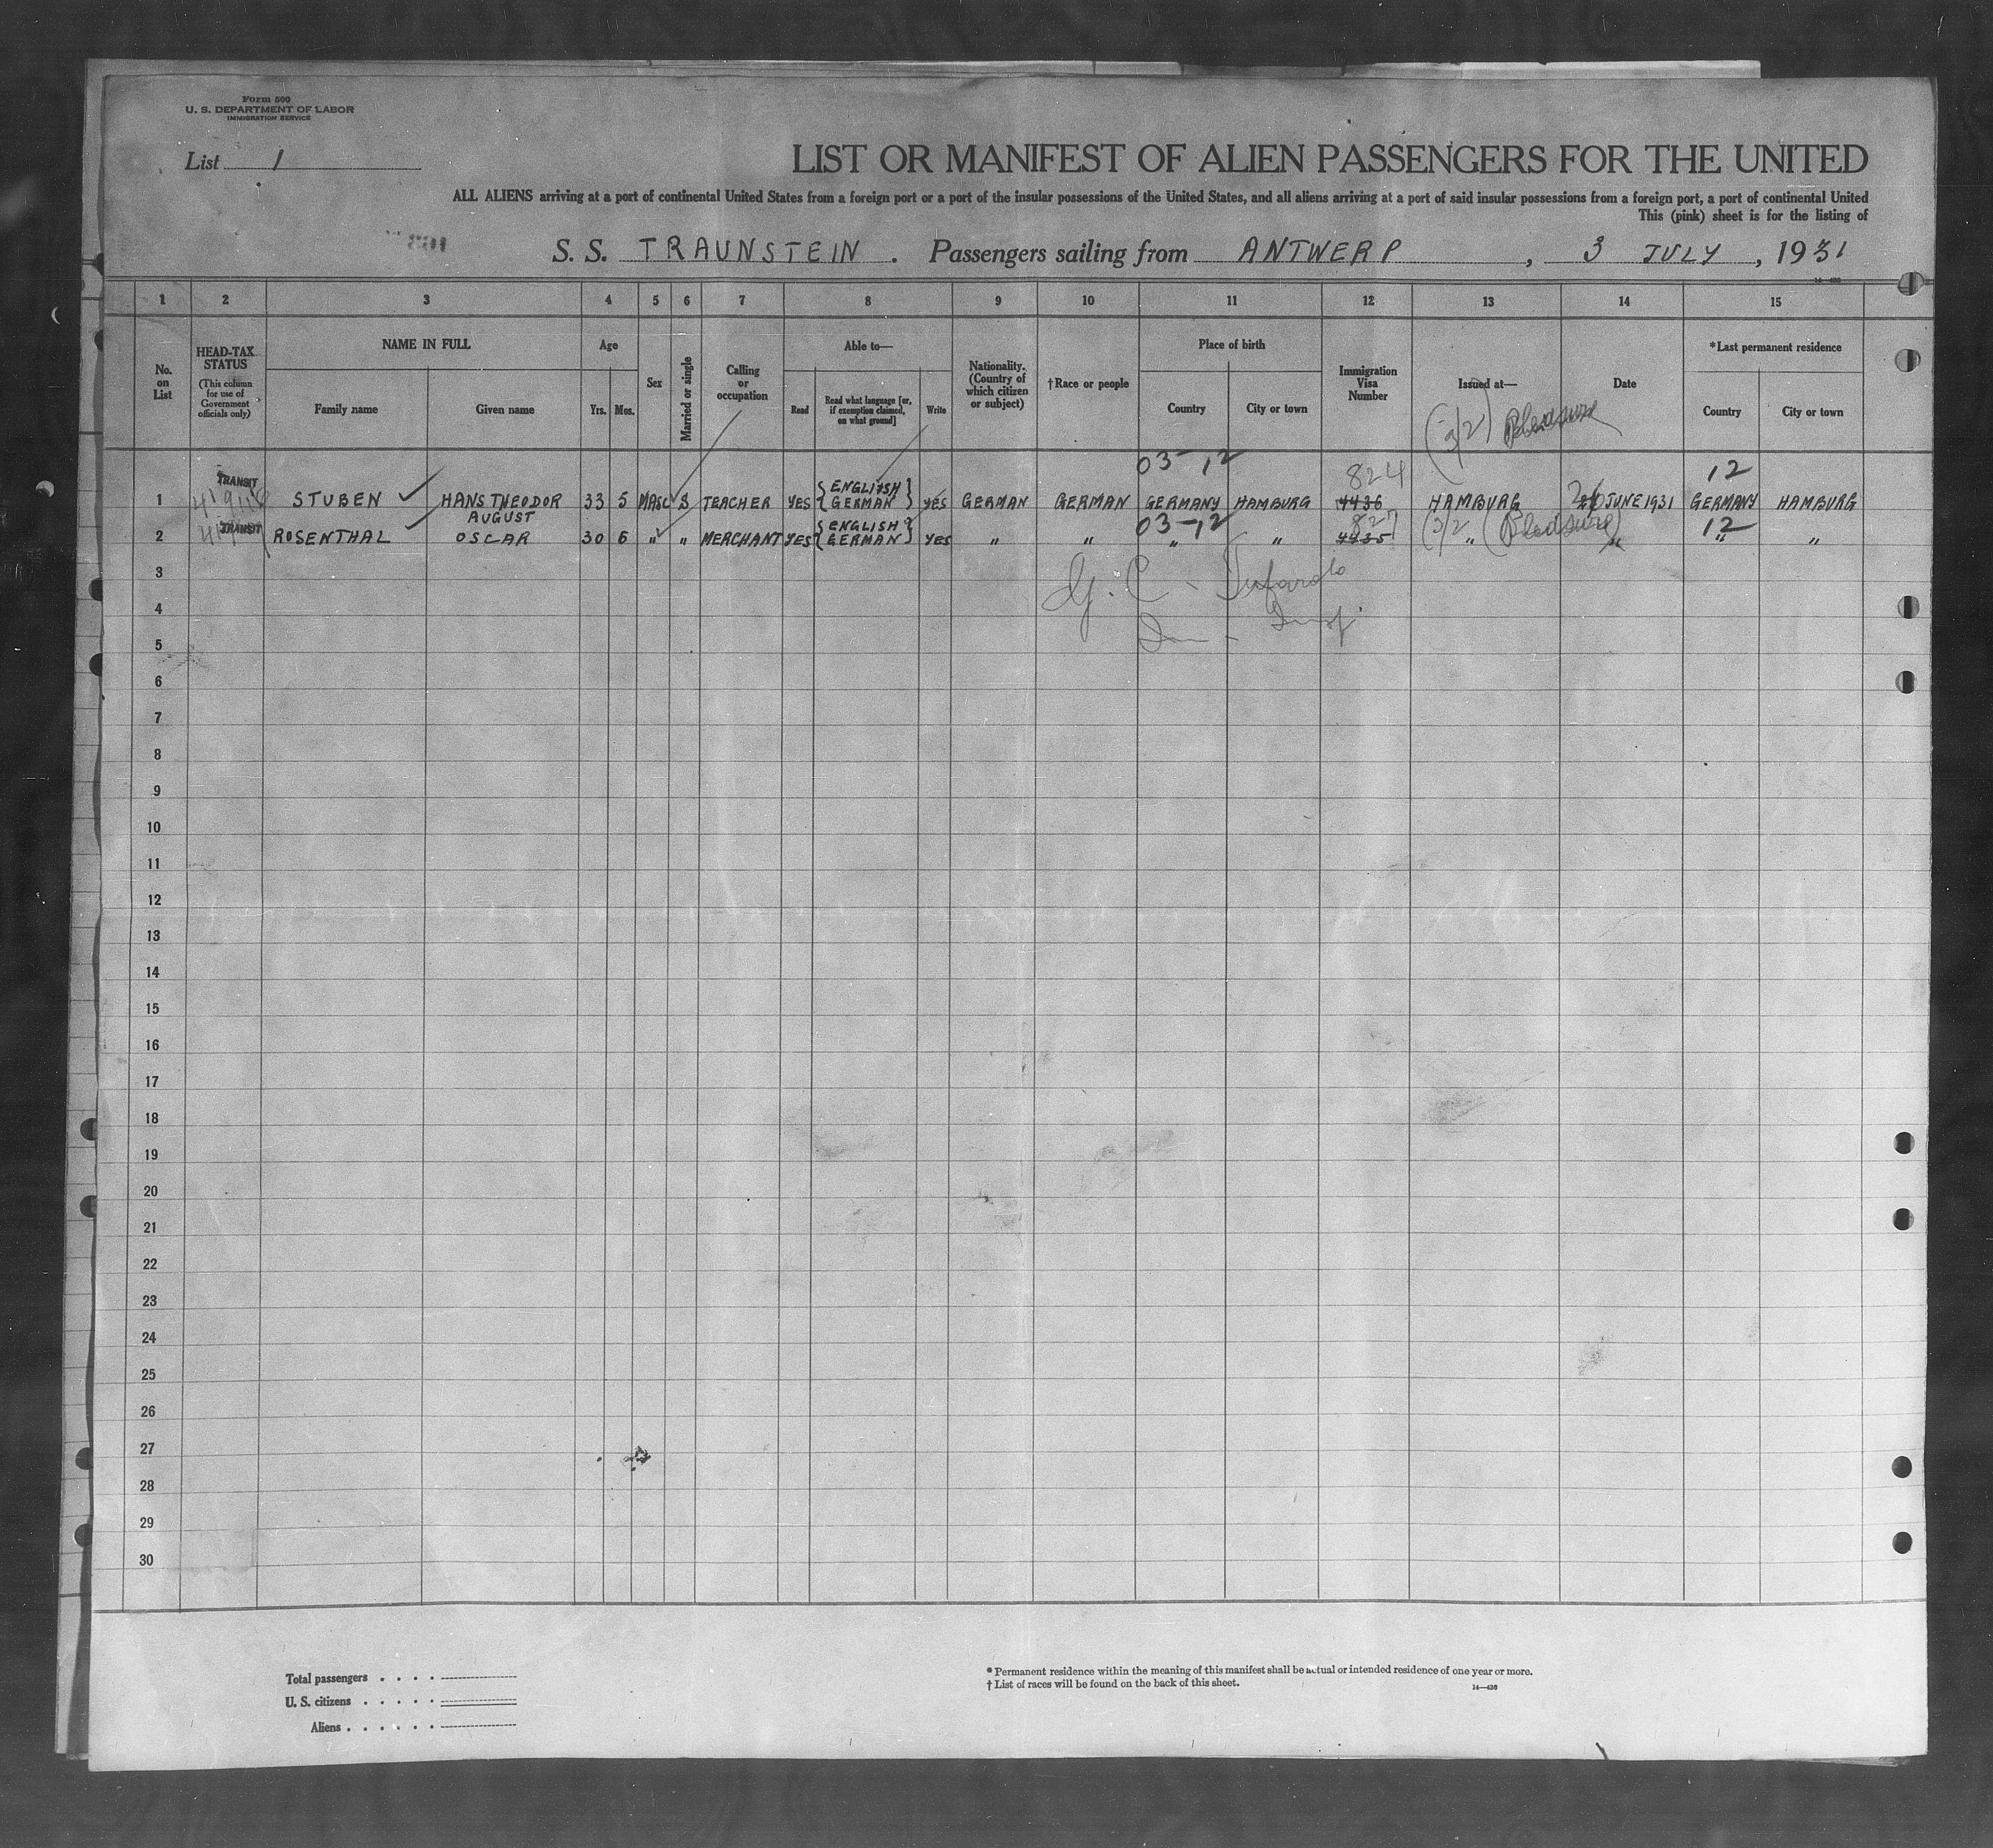 Form 500
U. S. DEPARTMENT OF LABOR
IMMIGRATION SERVICE
List 1
LIST OR MANIFEST OF ALIEN PASSENGERS FOR THE UNITED
ALL ALIENS arriving at a port of continental United States from a foreign port or a port of the insular possessions of the United States, and all aliens arriving at a port of said insular possessions from a foreign port, a port of continental United
This (pink) sheet is for the listing of
S. S. TRAUNSTEIN . Passengers sailing from ANTWERP , 3 JULY , 1931
14—430
1 2 3 4 5 6 7 8 9 10 11 12 13 14 15
No. on List
HEAD-TAX STATUS
(This column for use of Government officials only)
NAME IN FULL
Family name
Given name
Age
Yrs.
Mos.
Sex
Married or single
Calling or occupation
Able to—
Read
Read what language [or, if exemption claimed, on what ground]
Write
Nationality. (Country of which citizen or subject)
†Race or people
Place of birth
Country
City or town
Immigration Visa Number
Issued at—
Date
*Last permanent residence
Country
City or town
(3/2)
03-12 824 12
1 TRANSIT STUBEN HANS THEODOR AUGUST 33 5 MASC S TEACHER YES {ENGLISH GERMAN} YES GERMAN GERMAN GERMANY HAMBURG 4436 HAMBURG 26 JUNE 1931 GERMANY HAMBURG
03-12 827 (3/2 12
2 TRANSIT ROSENTHAL OSCAR 30 6 " " MERCHANT YES {ENGLISH GERMAN} YES " " " " 4435 " " " "
3
4
5
6
7
8
9
10
11
12
13
14
15
16
17
18
19
20
21
22
23
24
25
26
27
28
29
30
Total passengers . . . .
U. S. citizens . . . . .
Aliens . . . . . .
* Permanent residence within the meaning of this manifest shall be actual or intended residence of one year or more.
† List of races will be found on the back of this sheet.
14—430